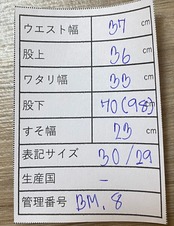 ウエスト幅 37 cm
股上 36 cm
ワタリ幅 33 cm
股下 70(98) cm
すそ幅 23 cm
表記サイズ 30/29
生産国 -
管理番号 BM.8